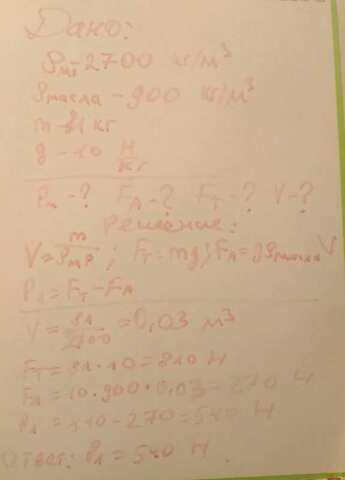 Дано:
ρмр - 2700 кг/м³
ρмасла - 900 кг/м³
m - 81 кг
g - 10 Н/кг
P₁ - ? Fₐ - ? Fт - ? V - ?
Решение:
V = m/ρмр ; Fт = mg ; Fₐ = gρмасла V
P₁ = Fт - Fₐ
V = 81/2700 = 0,03 м³
Fт = 81 · 10 = 810 Н
Fₐ = 10 · 900 · 0,03 = 270 Н
P₁ = 810 - 270 = 540 Н
Ответ: P₁ = 540 Н.